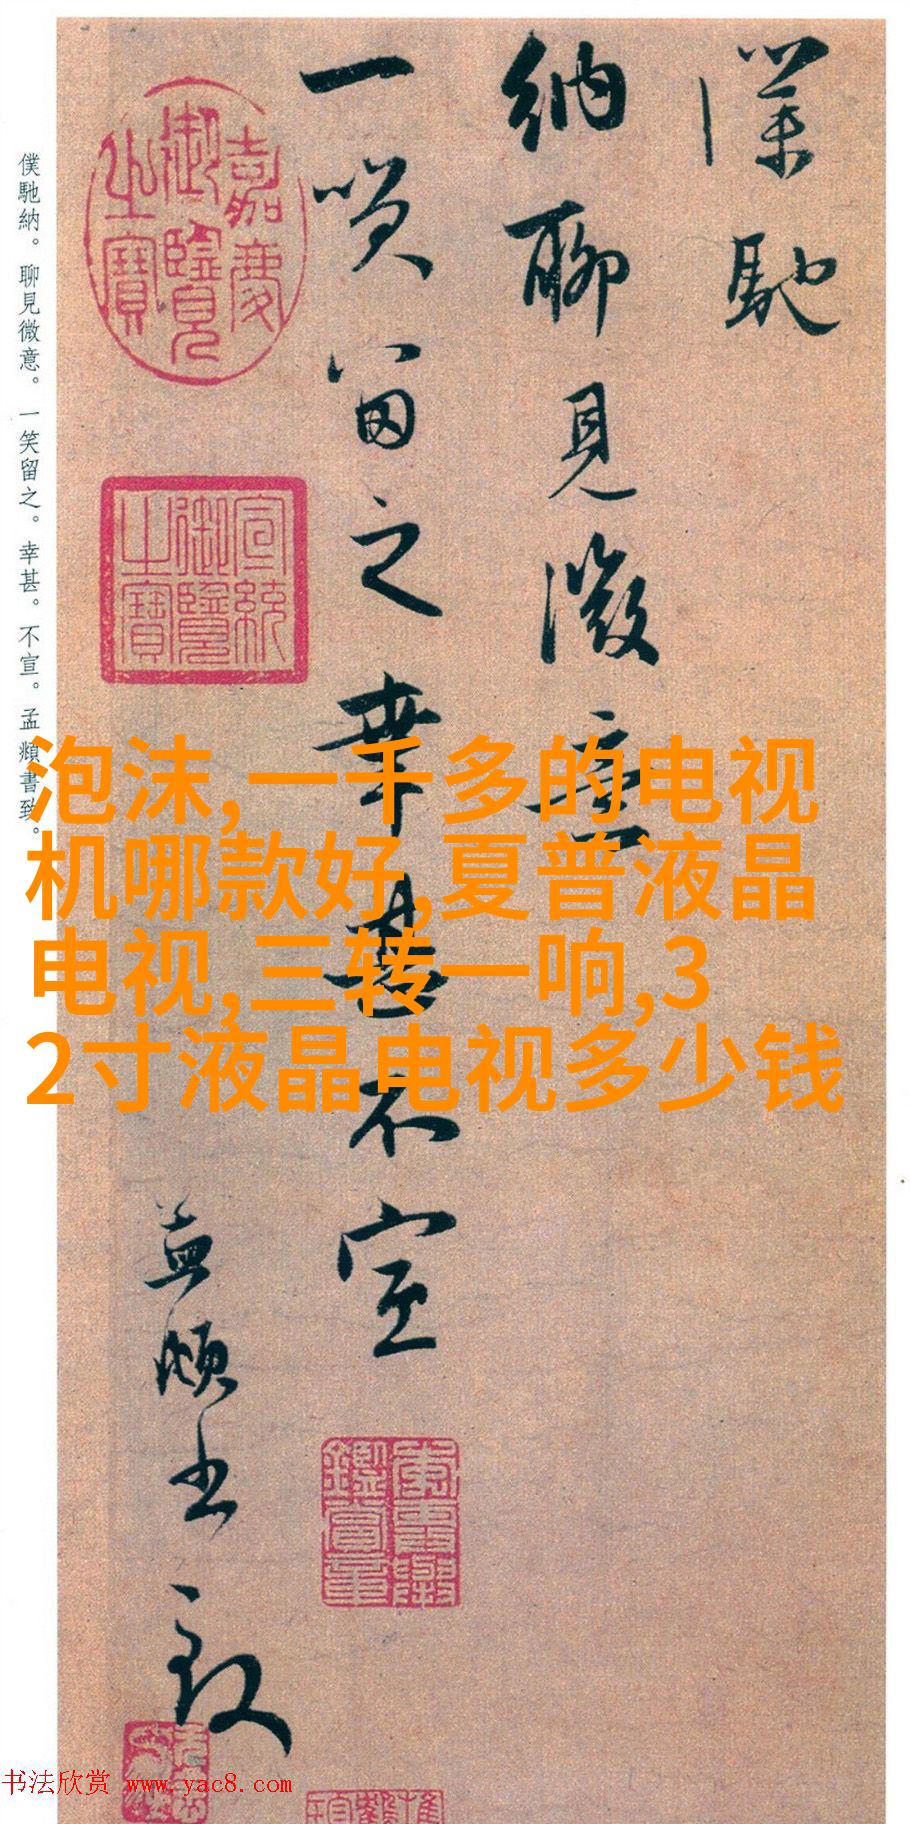 僕馳
納聊見微意
一笑留之幸甚不宣
孟頫書致
嘉慶
御覽
之寶
宣統
御覽
之寶
僕馳納。聊見微意。一笑留之。幸甚。不宣。孟頫書致。
泡沫,一千多的电视
机哪款好,夏普液晶
电视,三转一响,3
2寸液晶电视多少钱
书法欣赏 www.yac8.com